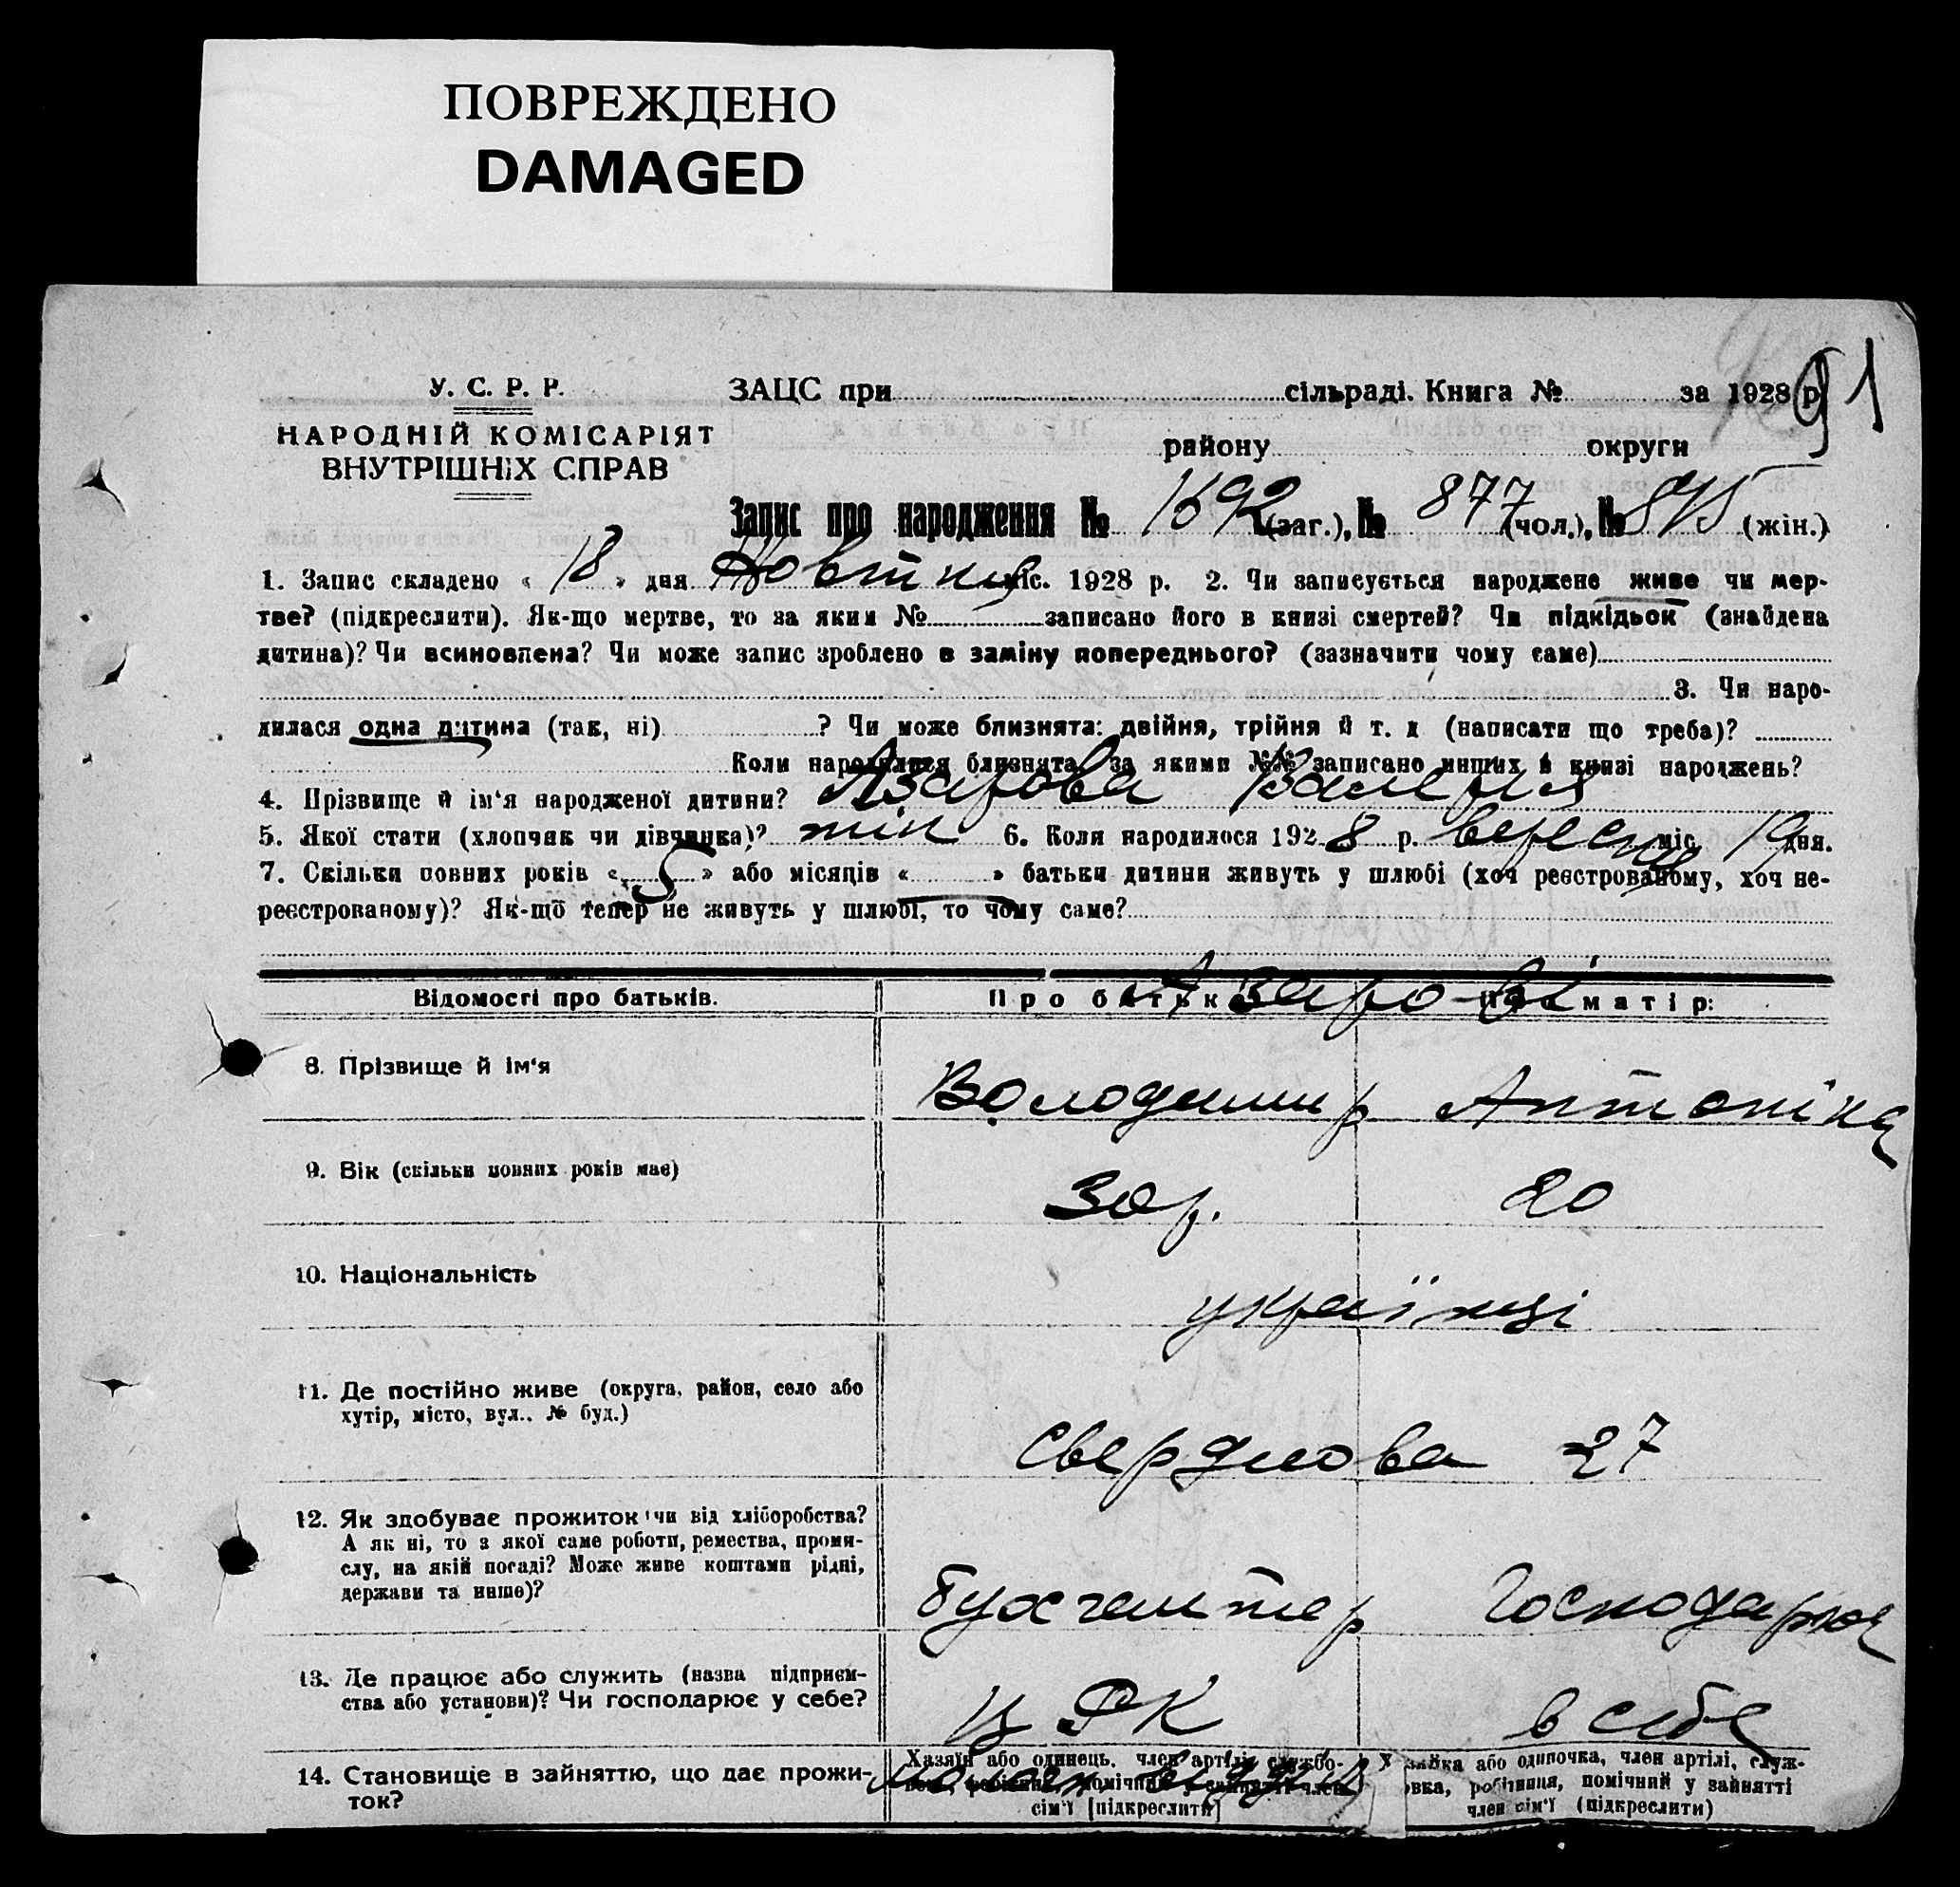 ПОВРЕЖДЕНО
DAMAGED
91
У. С. Р. Р.
НАРОДНІЙ КОМІСАРІЯТ
ВНУТРІШНІХ СПРАВ
ЗАЦС при сільраді. Книга № за 1928 р
району округи
Запис про народження № 1692 (заг.), № 877 (чол.), № (жін.)
1. Запис складено « 18 » дня Жовтня міс. 1928 р. 2. Чи записується народжене живе чи мер-
тве? (підкреслити). Як-що мертве, то за яким № записано його в книзі смертей? Чи підкідьок (знайдена
дитина)? Чи всиновлена? Чи може запис зроблено в заміну попереднього? (зазначити чому саме)
3. Чи наро-
дилася одна дитина (так, ні) ? Чи може близнята: двійня, трійня й т. д (написати що треба)?
Коли народилися близнята, за якими №№ записано инших в книзі народжень?
4. Прізвище й ім'я народженої дитини? Азарова Валерія
5. Якої стати (хлопчик чи дівчинка)? жін 6. Коли народилося 1928 р. вересня міс. 19 дня.
7. Скільки повних років « 5 » або місяців « » батьки дитини живуть у шлюбі (хоч реєстрованому, хоч не-
реєстрованому)? Як-що тепер не живуть у шлюбі, то чому саме?
Відомості про батьків. Про батька Про матір:
Азарові
8. Прізвище й ім'я Володимир Антоніна
9. Вік (скільки повних років має) 30 р. 20
10. Національність українці
11. Де постійно живе (округа, район, село або
хутір, місто, вул.. № буд.)
Свердлова 27
12. Як здобуває прожиток чи від хліборобства?
А як ні, то з якої саме роботи, ремества, проми-
слу, на якій посаді? Може живе коштами рідні,
держави та инше)?
бухгалтер Господарює
13. Де працює або служить (назва підприєм-
ства або установи)? Чи господарює у себе?
ЦРК в себе
14. Становище в зайняттю, що дає прожи-
ток?
Хазяїн або одинець. член артілі, службо-
помічний у зайнятті член
сім'ї [підкреслити]
Хазяйка або одиночка, член артілі, служ-
бовка, робітниця, помічний у зайнятті
член сім'ї (підкреслити)